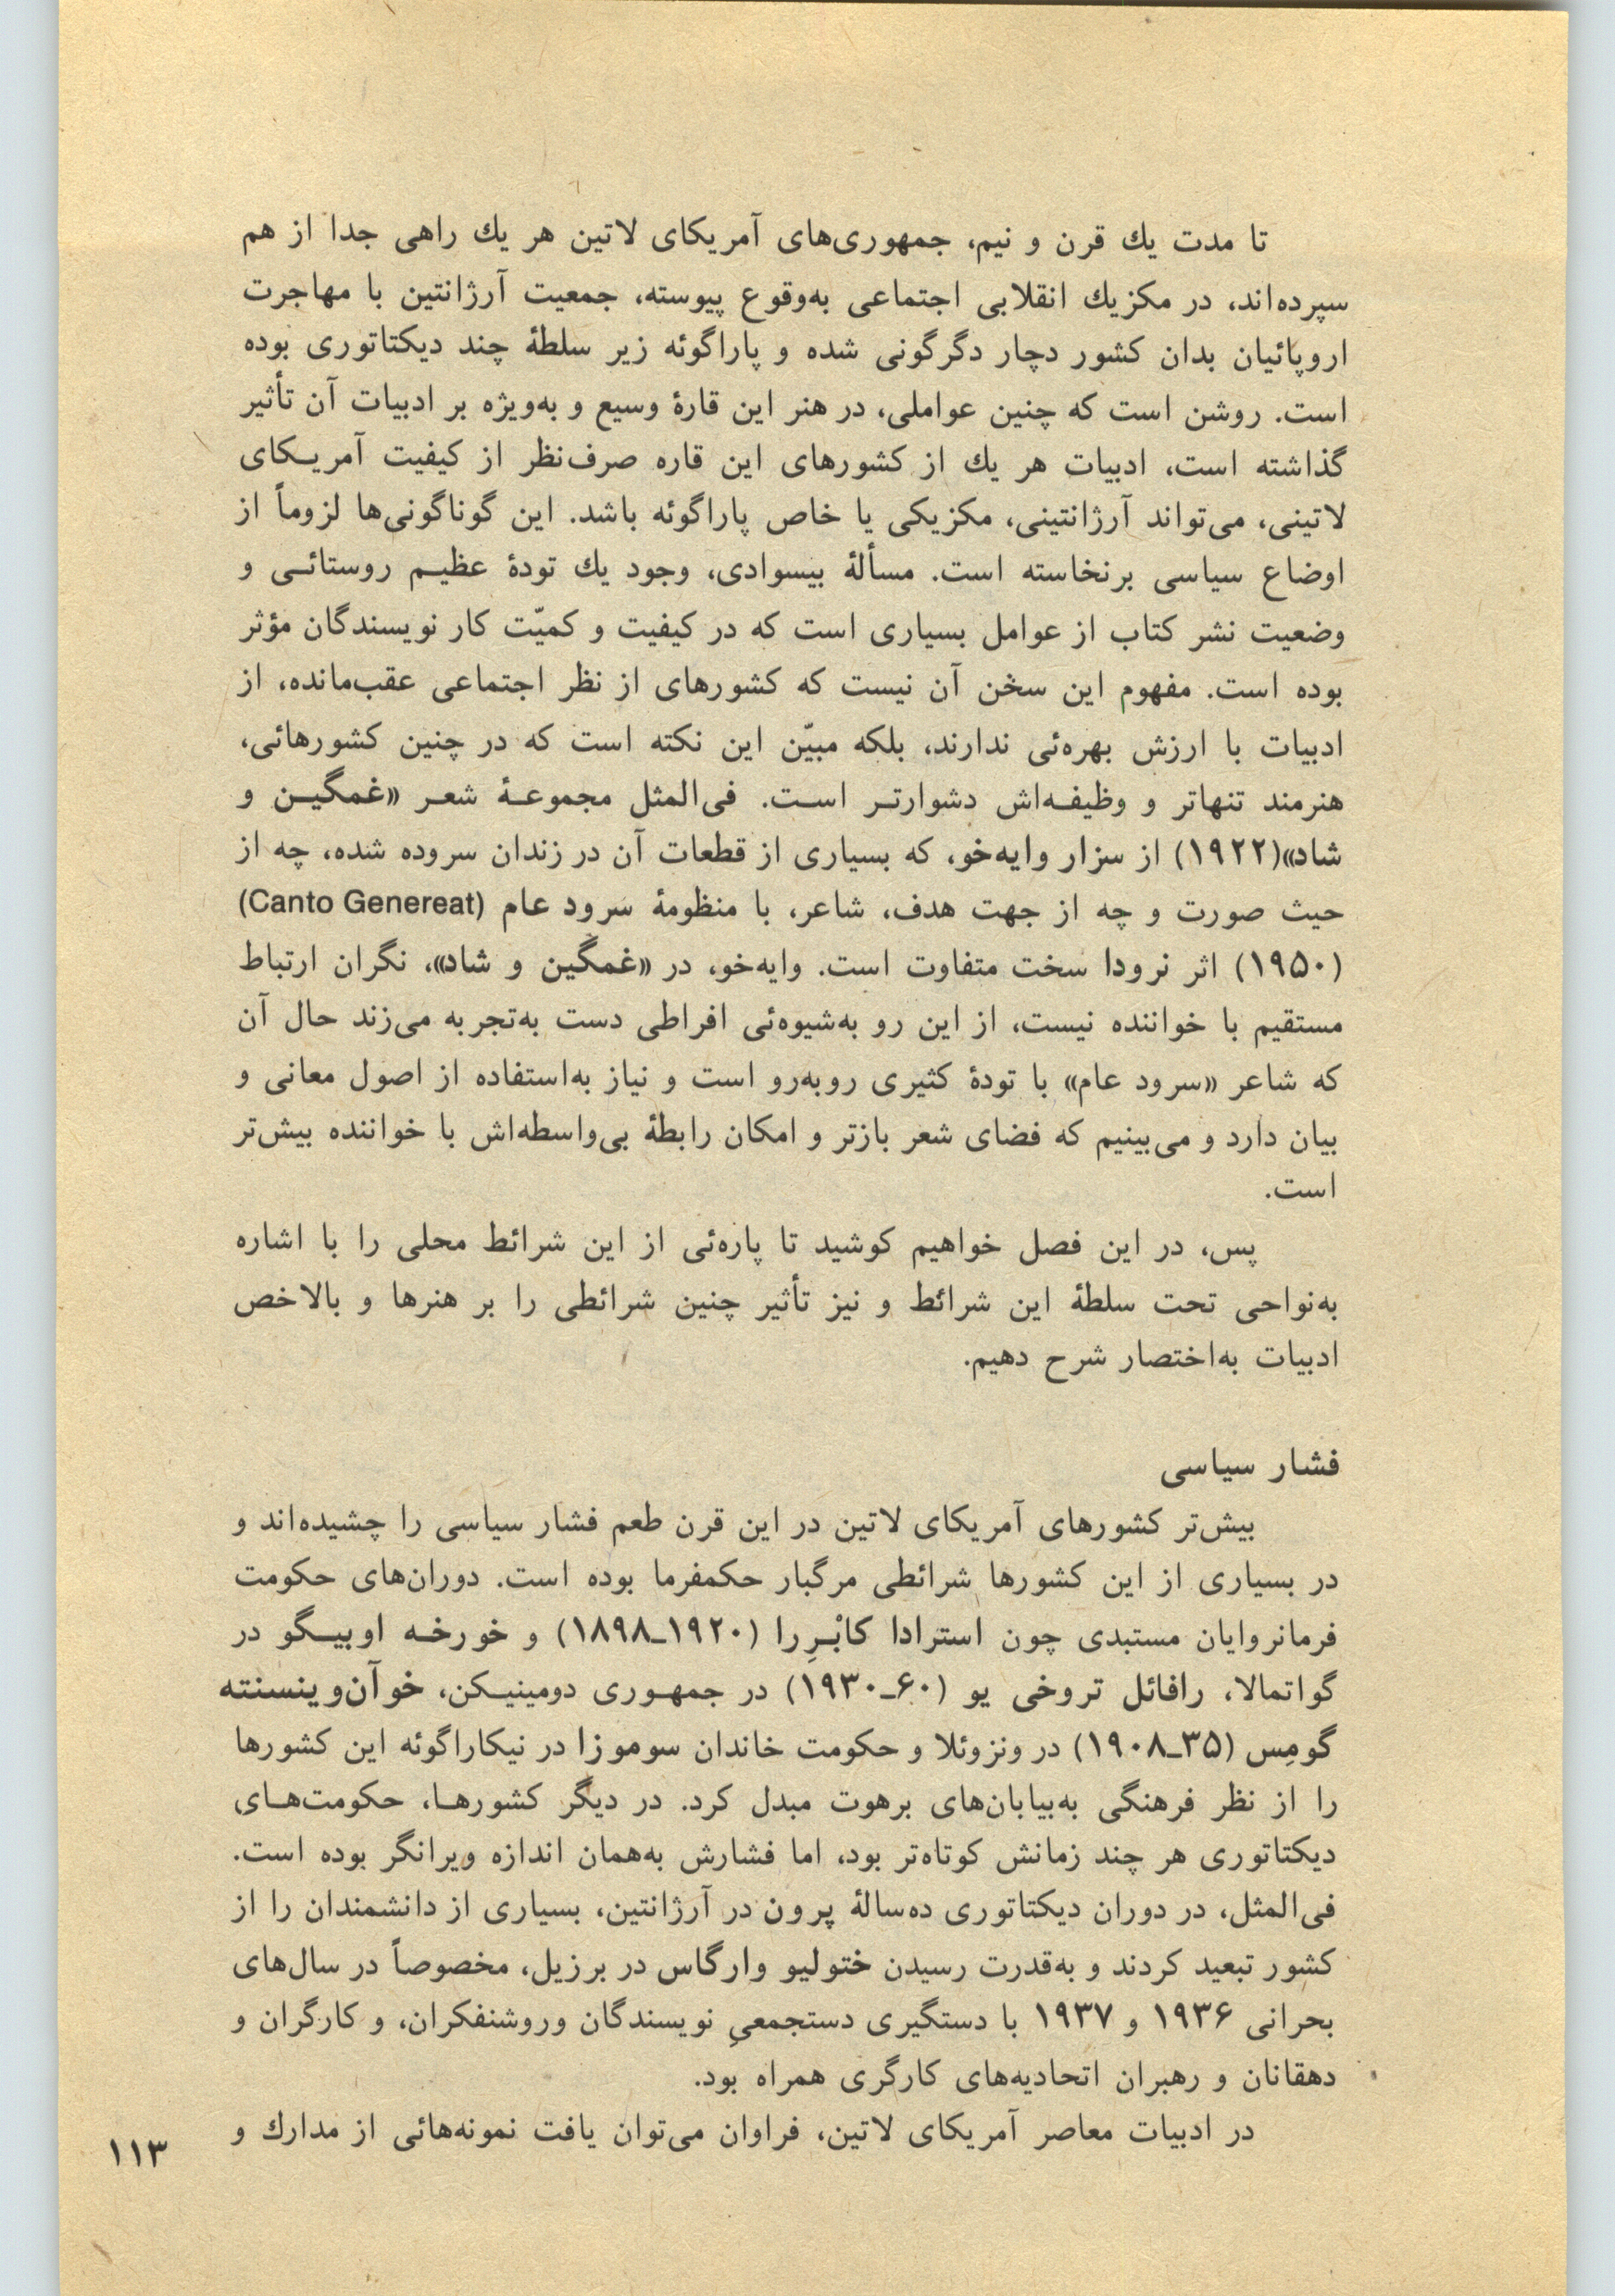 تا مدت یك قرن و نیم، جمهوری‌های آمریکای لاتین هر یك راهی جدا از هم
سپرده‌اند، در مکزیك انقلابی اجتماعی به‌وقوع پیوسته، جمعیت آرژانتین با مهاجرت
اروپائیان بدان کشور دچار دگرگونی شده و پاراگوئه زیر سلطهٔ چند دیکتاتوری بوده
است. روشن است که چنین عواملی، در هنر این قارهٔ وسیع و به‌ویژه بر ادبیات آن تأثیر
گذاشته است، ادبیات هر یك از کشورهای این قاره صرف‌نظر از کیفیت آمریکای
لاتینی، می‌تواند آرژانتینی، مکزیکی یا خاص پاراگوئه باشد. این گوناگونی‌ها لزوماً از
اوضاع سیاسی برنخاسته است. مسألهٔ بیسوادی، وجود یك تودهٔ عظیم روستائی و
وضعیت نشر کتاب از عوامل بسیاری است که در کیفیت و کمیّت کار نویسندگان مؤثر
بوده است. مفهوم این سخن آن نیست که کشورهای از نظر اجتماعی عقب‌مانده، از
ادبیات با ارزش بهره‌ئی ندارند، بلکه مبیّن این نکته است که در چنین کشورهائی،
هنرمند تنهاتر و وظیفه‌اش دشوارتر است. فی‌المثل مجموعهٔ شعر «غمگین و
شاد»(۱۹۲۲) از سزار وایه‌خو، که بسیاری از قطعات آن در زندان سروده شده، چه از
حیث صورت و چه از جهت هدف، شاعر، با منظومهٔ سرود عام (Canto Genereat)
(۱۹۵۰) اثر نرودا سخت متفاوت است. وایه‌خو، در «غمگین و شاد»، نگران ارتباط
مستقیم با خواننده نیست، از این رو به‌شیوه‌ئی افراطی دست به‌تجربه می‌زند حال آن
که شاعر «سرود عام» با تودهٔ کثیری روبه‌رو است و نیاز به‌استفاده از اصول معانی و
بیان دارد و می‌بینیم که فضای شعر بازتر و امکان رابطهٔ بی‌واسطه‌اش با خواننده بیش‌تر
است.
پس، در این فصل خواهیم کوشید تا پاره‌ئی از این شرائط محلی را با اشاره
به‌نواحی تحت سلطهٔ این شرائط و نیز تأثیر چنین شرائطی را بر هنرها و بالاخص
ادبیات به‌اختصار شرح دهیم.
فشار سیاسی
بیش‌تر کشورهای آمریکای لاتین در این قرن طعم فشار سیاسی را چشیده‌اند و
در بسیاری از این کشورها شرائطی مرگبار حکمفرما بوده است. دوران‌های حکومت
فرمانروایان مستبدی چون استرادا کابْرِرا (۱۹۲۰ـ۱۸۹۸) و خورخه اوبیگو در
گواتمالا، رافائل تروخی یو (۶۰ـ۱۹۳۰) در جمهوری دومینیکن، خوآن‌وینسنته
گومِس (۳۵ـ۱۹۰۸) در ونزوئلا و حکومت خاندان سوموزا در نیکاراگوئه این کشورها
را از نظر فرهنگی به‌بیابان‌های برهوت مبدل کرد. در دیگر کشورها، حکومت‌های
دیکتاتوری هر چند زمانش کوتاه‌تر بود، اما فشارش به‌همان اندازه ویرانگر بوده است.
فی‌المثل، در دوران دیکتاتوری ده‌سالهٔ پرون در آرژانتین، بسیاری از دانشمندان را از
کشور تبعید کردند و به‌قدرت رسیدن ختولیو وارگاس در برزیل، مخصوصاً در سال‌های
بحرانی ۱۹۳۶ و ۱۹۳۷ با دستگیری دستجمعیِ نویسندگان وروشنفکران، و کارگران و
دهقانان و رهبران اتحادیه‌های کارگری همراه بود.
در ادبیات معاصر آمریکای لاتین، فراوان می‌توان یافت نمونه‌هائی از مدارك و
۱۱۳